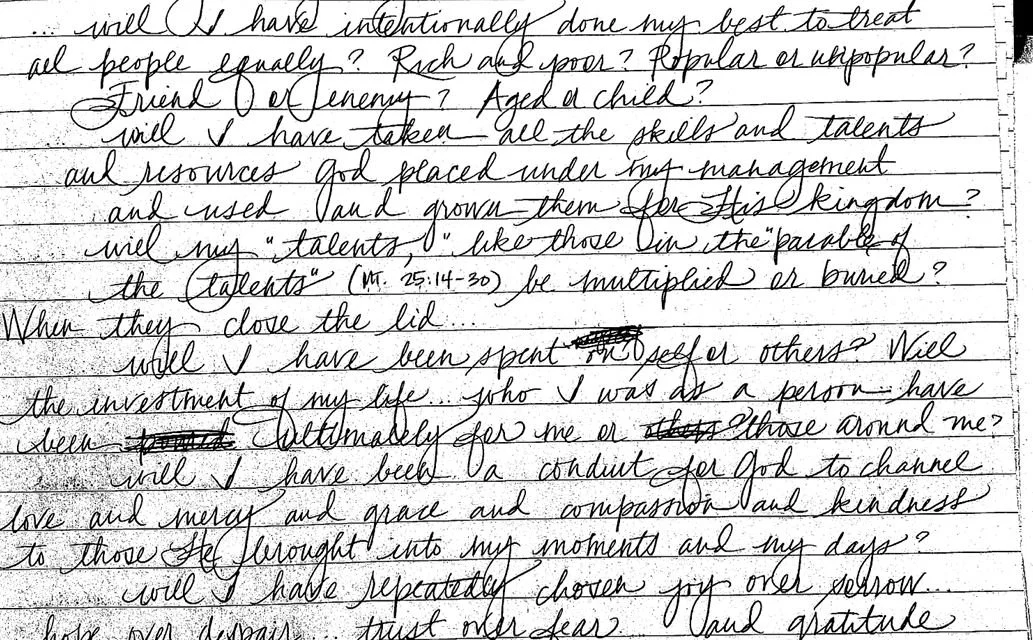 ... will I have intentionally done my best to treat
all people equally? Rich and poor? Popular or unpopular?
Friend or enemy? Aged or child?
will I have taken all the skills and talents
and resources God placed under my management
and used and grown them for His kingdom?
will my "talents," like those in the "parable of
the talents" (Mt. 25:14-30) be multiplied or buried?
When they close the lid...
will I have been spent on self or others? Will
the investment of my life... who I was as a person have
been ultimately for me or those around me?
will I have been a conduit for God to channel
love and mercy and grace and compassion and kindness
to those He brought into my moments and my days?
will I have repeatedly chosen joy over sorrow...
hope over despair... trust over fear and gratitude